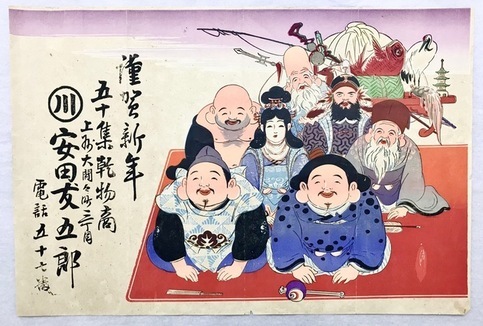 謹賀新年
五十集乾物商
上州大間々町三丁目
川 安田友五郎
電話五十七番